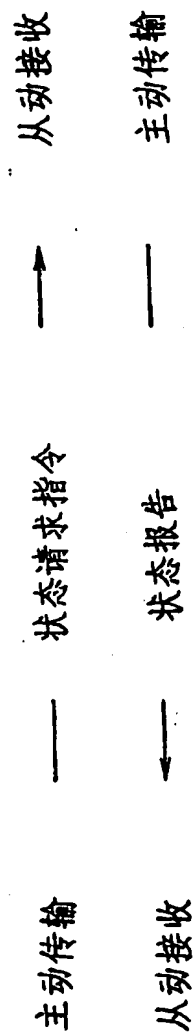 主动传输 状态请求指令 从动接收
从动接收 状态报告 主动传输